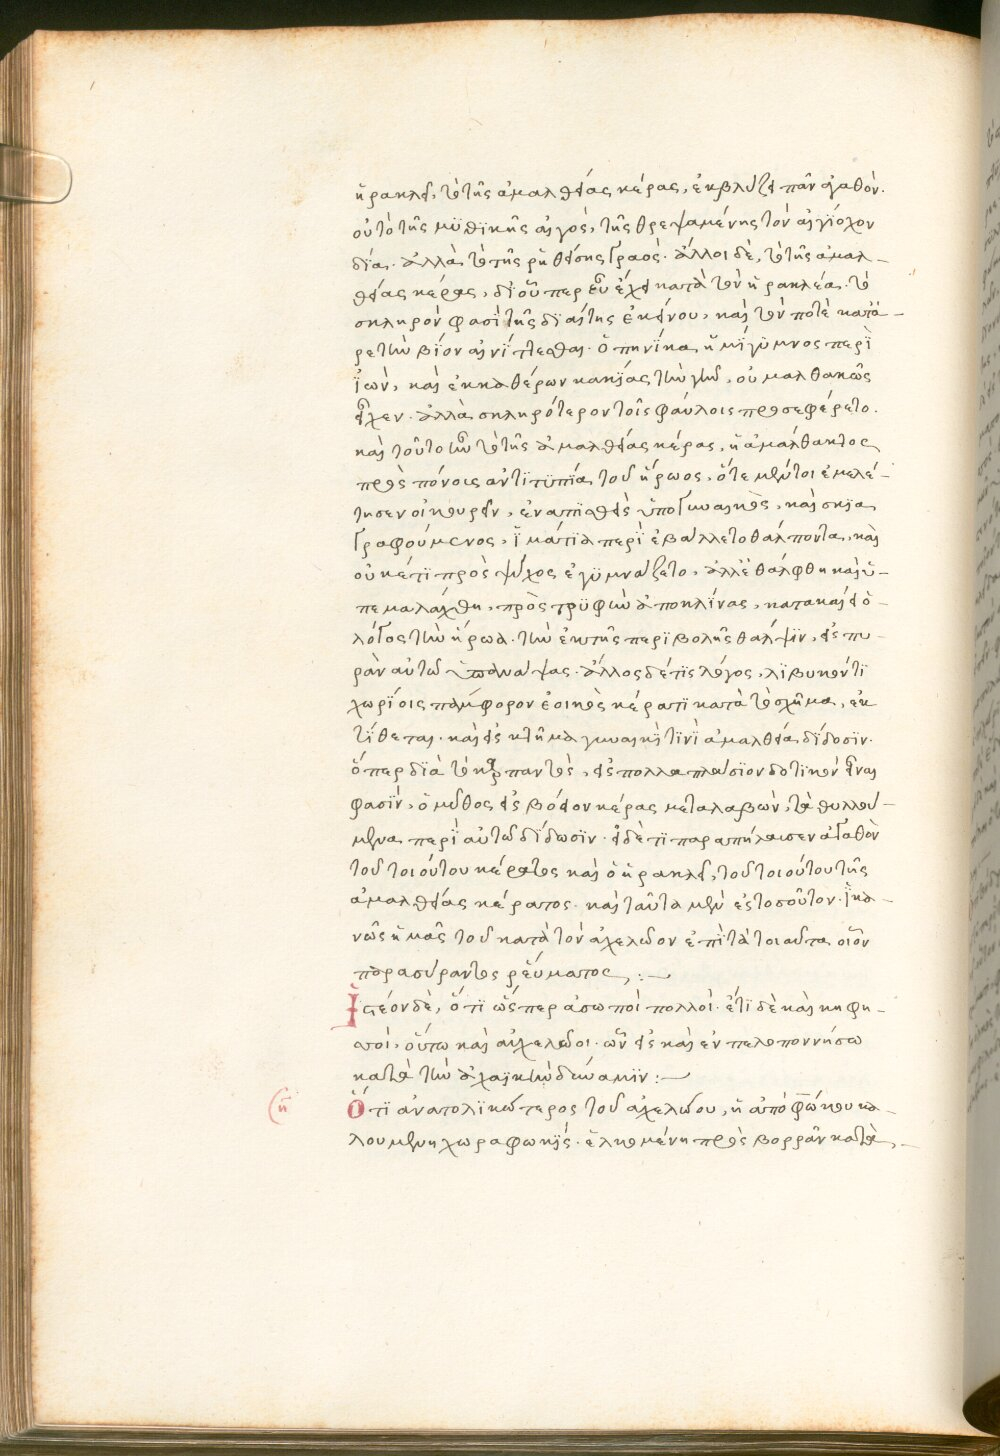 ἡρακλεῖ, τὸ τῆς ἀμαλθείας κέρας, ἐκβλύζει πᾶν ἀγαθόν.
οὐ τὸ τῆς μϋθϊκῆς αἰγὸς, τῆς θρεψαμένης τὸν αἰγίοχον
δία. ἀλλὰ τὸ τῆς ῥηθείσης γραός. ἄλλοι δὲ, τὸ τῆς ἀμαλ-
θείας κέρας, δι' οὗπερ εὖ ἔχει κατὰ τὸν ἡρακλέα. τὸ
σκληρόν φασὶ τῆς διαίτης ἐκείνου, καὶ τόν ποτὲ κατὰ
ρετὴν βίον αἰνίττεσθαι. ὁπηνίκα ἡμίγυμνος περϊ
ϊὼν, καὶ ἐκκαθαίρων κακίας τὴν γῆν, οὐ μαλθακῶς
εἶχεν. ἀλλὰ σκληρότερον τοῖς φαύλοις προσεφέρετο.
καὶ τοῦτο ἦν τὸ τῆς ἀμαλθείας κέρας, ἡ ἀμάλθακτος
πρὸς πόνοις ἀντιτυπία τοῦ ἥρωος, ὅτε μέντοι ἐμελέ-
τησεν οἰκουρεῖν, ἐναπαχθεὶς ὑπὸ γυναικὸς, καὶ σκια
γραφούμενος, ἱμάτια περϊεβάλλετο θάλποντα, καὶ
οὐκέτι πρὸς ψῦχος ἐγυμνάζετο, ἀλλ' ἐθάλφθη καὶ ὑ-
πεμαλάχθη, πρὸς τρυφὴν ἀποκλίνας, κατακαίει ὁ
λόγος τὸν ἥρωα. τὴν ἐκ τῆς περιβολῆς θάλψιν, εἰς πυ-
ρὰν αὐτῶ ὑπανάψας. ἄλλος δέ τις λόγος, λιβυκόν τι
χωρίοις πάμφορον ἐοικὸς κέρατι κατὰ τὸ σχῆμα, ἐκ
τίθεται. καὶ εἰς κτῆμα γυναικὶ τινὶ ἀμαλθεία δίδοσιν.
ὅπερ διὰ τὸ παντὸς, εἰς πολλαπλασίον δοτικὸν εἶναι
φασὶν, ὁ μῦθος εἰς βόειον κέρας μεταλαβὼν, τὰ θυλλού-
μενα περὶ αὐτῶ δίδωσιν. εἰ δέ τι παραπήλαυσεν ἀγαθὸν
τοῦ τοιούτου κέρατος καὶ ὁ ἡρακλεῖ, τοῦ τοιούτου τῆς
ἀμαλθείας κέρατος. καὶ ταῦτα μὲν ἐς τοσοῦτον. ἱκα-
νῶς ἡμᾶς τοῦ κατὰ τὸν ἀχελῶον ἐπὶ τὰ τοιαῦτα οἷον
παρασύραντος ῥεύματος, :—
Ἰστέον δὲ, ὅτι ὥσπερ ἀσωποὶ πολλοὶ. ἔτι δὲ καὶ κηφι-
σοὶ, οὕτω καὶ ἀχελῶοι. ὧν εἷς καὶ ἐν πελοποννήσω
κατὰ τὴν ἀχαϊκὴν δύναμιν :—
(η Ὅτι ἀνατολικώτερος τοῦ ἀχελώου, ἡ ἀπὸ κου κα-
λουμένη χώρα φωκὶς. ἑλκομένη πρὸς βορρᾶν κατὰ,